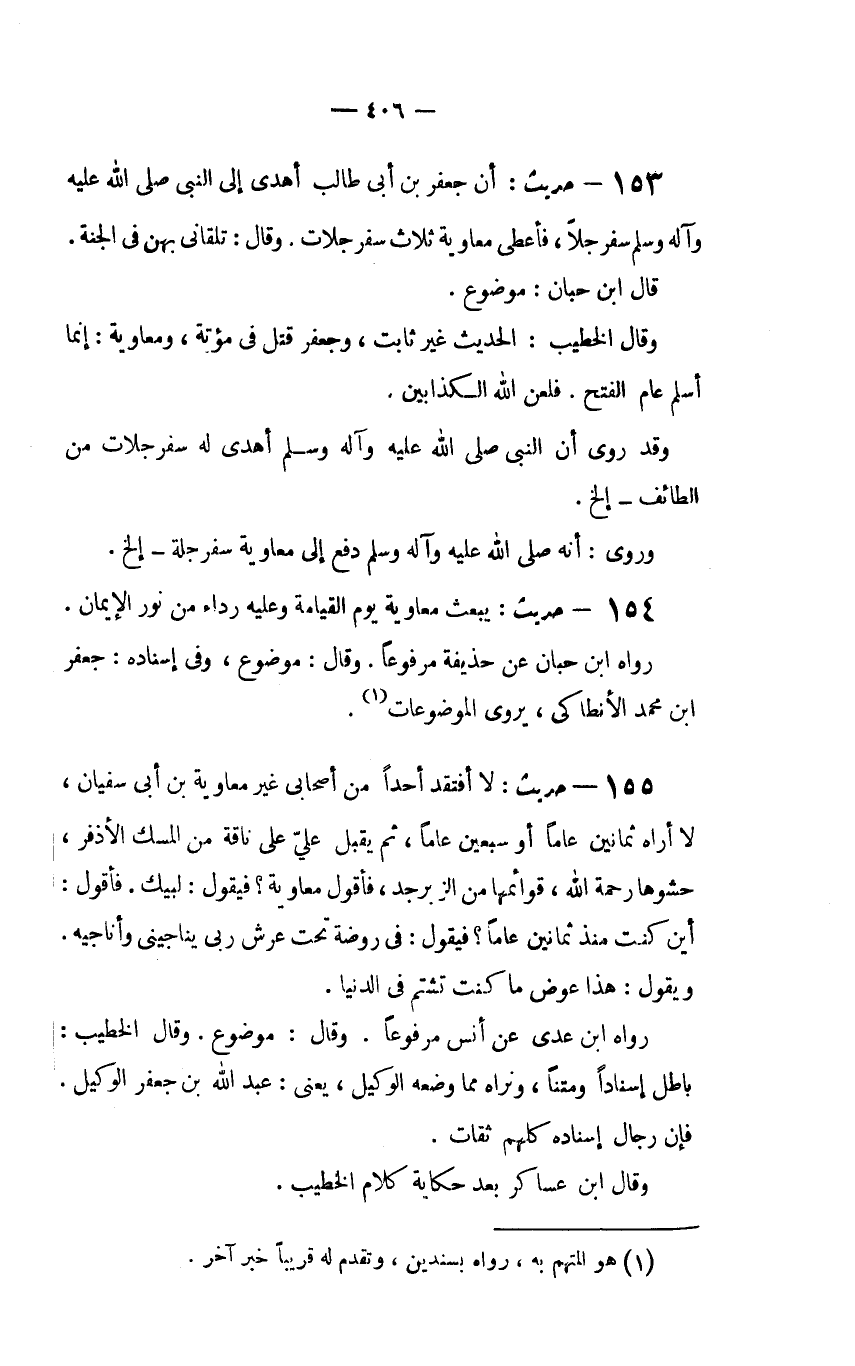 — ٤٠٦ —
١٥٣ – حديث : أن جعفر بن أبى طالب أهدى إلى النبى صلى الله عليه
وآله وسلم سفرجلاً ، فأعطى معاوية ثلاث سفرجلات . وقال : تلقانى بهن فى الجنة .
قال ابن حبان : موضوع .
وقال الخطيب : الحديث غير ثابت ، وجعفر قتل فى مؤتة ، ومعاوية : إنما
أسلم عام الفتح . فلعن الله الكذابين .
وقد روى أن النبى صلى الله عليه وآله وسلم أهدى له سفرجلات من
الطائف – إلخ .
وروى : أنه صلى الله عليه وآله وسلم دفع إلى معاوية سفرجلة – إلخ .
١٥٤ – حديث : يبعث معاوية يوم القيامة وعليه رداء من نور الإيمان .
رواه ابن حبان عن حذيفة مرفوعاً . وقال : موضوع ، وفى إسناده : جعفر
ابن محمد الأنطاكى ، يروى الموضوعات(١) .
١٥٥ – حديث : لا أفتقد أحداً من أصحابى غير معاوية بن أبى سفيان ،
لا أراه ثمانين عاماً أو سبعين عاماً ، ثم يقبل علىّ على ناقة من المسك الأذفر ،
حشوها رحمة الله ، قوائمها من الزبرجد ، فأقول معاوية ؟ فيقول : لبيك . فأقول :
أين كنت منذ ثمانين عاماً ؟ فيقول : فى روضة تحت عرش ربى يناجينى وأناجيه .
ويقول : هذا عوض ما كنت تشتم فى الدنيا .
رواه ابن عدى عن أنس مرفوعاً . وقال : موضوع . وقال الخطيب :
باطل إسناداً ومتناً ، ونراه مما وضعه الوكيل ، يعنى : عبد الله بن جعفر الوكيل .
فإن رجال إسناده كلهم ثقات .
وقال ابن عساكر بعد حكاية كلام الخطيب .
(١) هو المتهم به ، رواه بسندين ، وتقدم له قريباً خبر آخر .